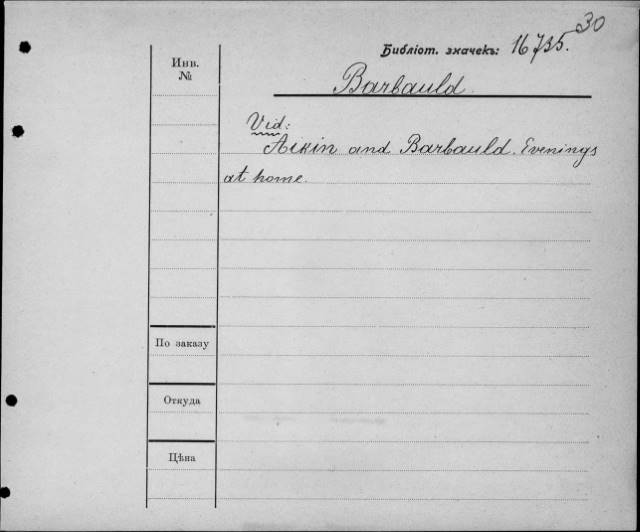 30
Библіот. значекъ: 16735.
Инв.
№
Barbauld.
Vid:
Aikin and Barbauld. Evenings
at home.
По заказу
Откуда
Цѣна